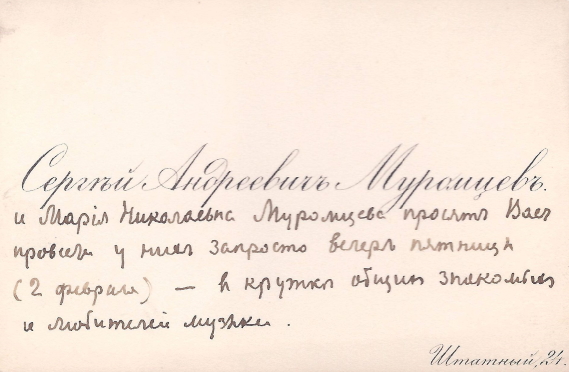 Сергѣй Андреевичъ Муромцевъ.
и Марія Николаевна Муромцева просятъ Васъ
провести у нихъ запросто вечеръ пятницы
(2 февраля) — въ кружкѣ общихъ знакомыхъ
и любителей музыки.
Штатный, 24.